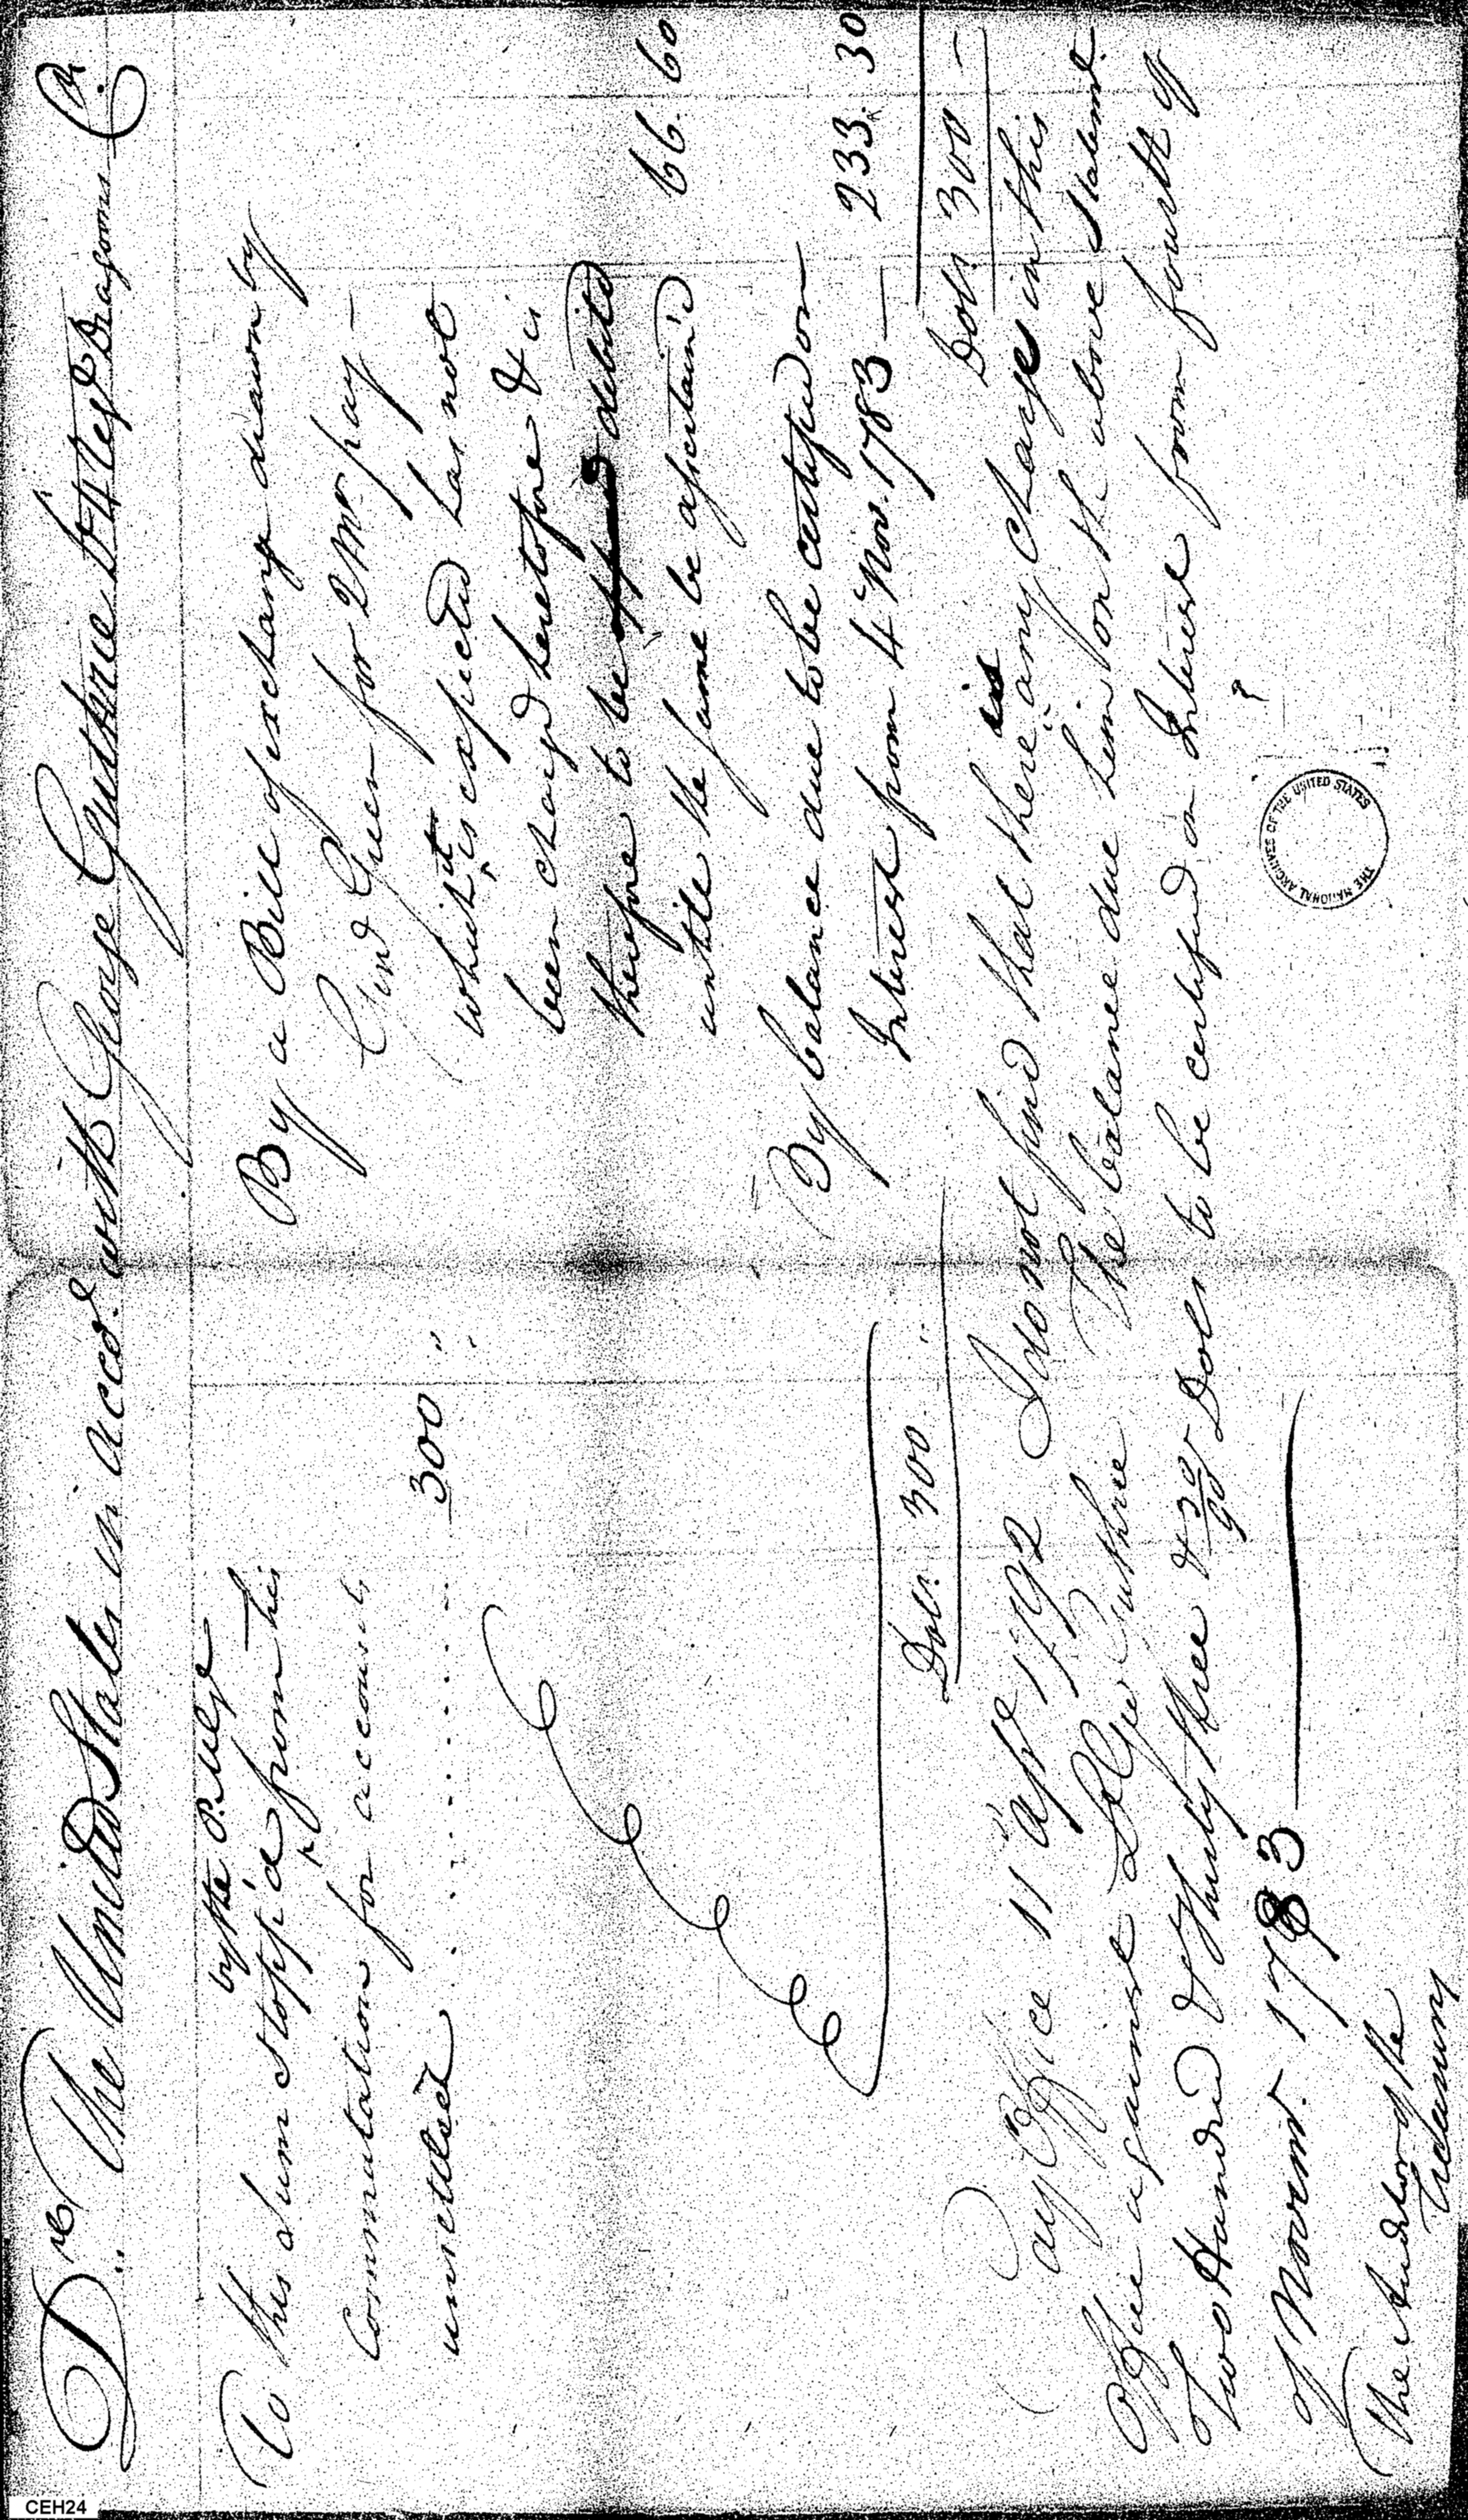 Dr. The United States in accot. with George Guthrie Lt 4 Regt Dragoons Cr.
by the P. M. G.
To this sum stopp'd from his
Commutation for accounts
unsettled . . . . . . . . . . 300 "
Dolls. 300 . .
By a Bill of exchange drawn by
Genl Green for 2 Mos. pay —
which it is expected has not
been charged heretofore & is
therefore to be debited
untill the same be ascertain'd 66. 60
By balance due to be certified on
Interest from 4 Nov. 1783 — 233. 30
Dolls. 300 —
Pay Office 11 Apl 1792 I do not find that there is any charge in this
Office against Lt Geo Guthrie The balance due him on the above Statemt.
Two Hundred & thirty three & 30/90 Dolls to be certified on Interest from fourth of
of Novemr. 1783 —
The Auditor of the
Treasury
THE NATIONAL ARCHIVES OF THE UNITED STATES
CEH24